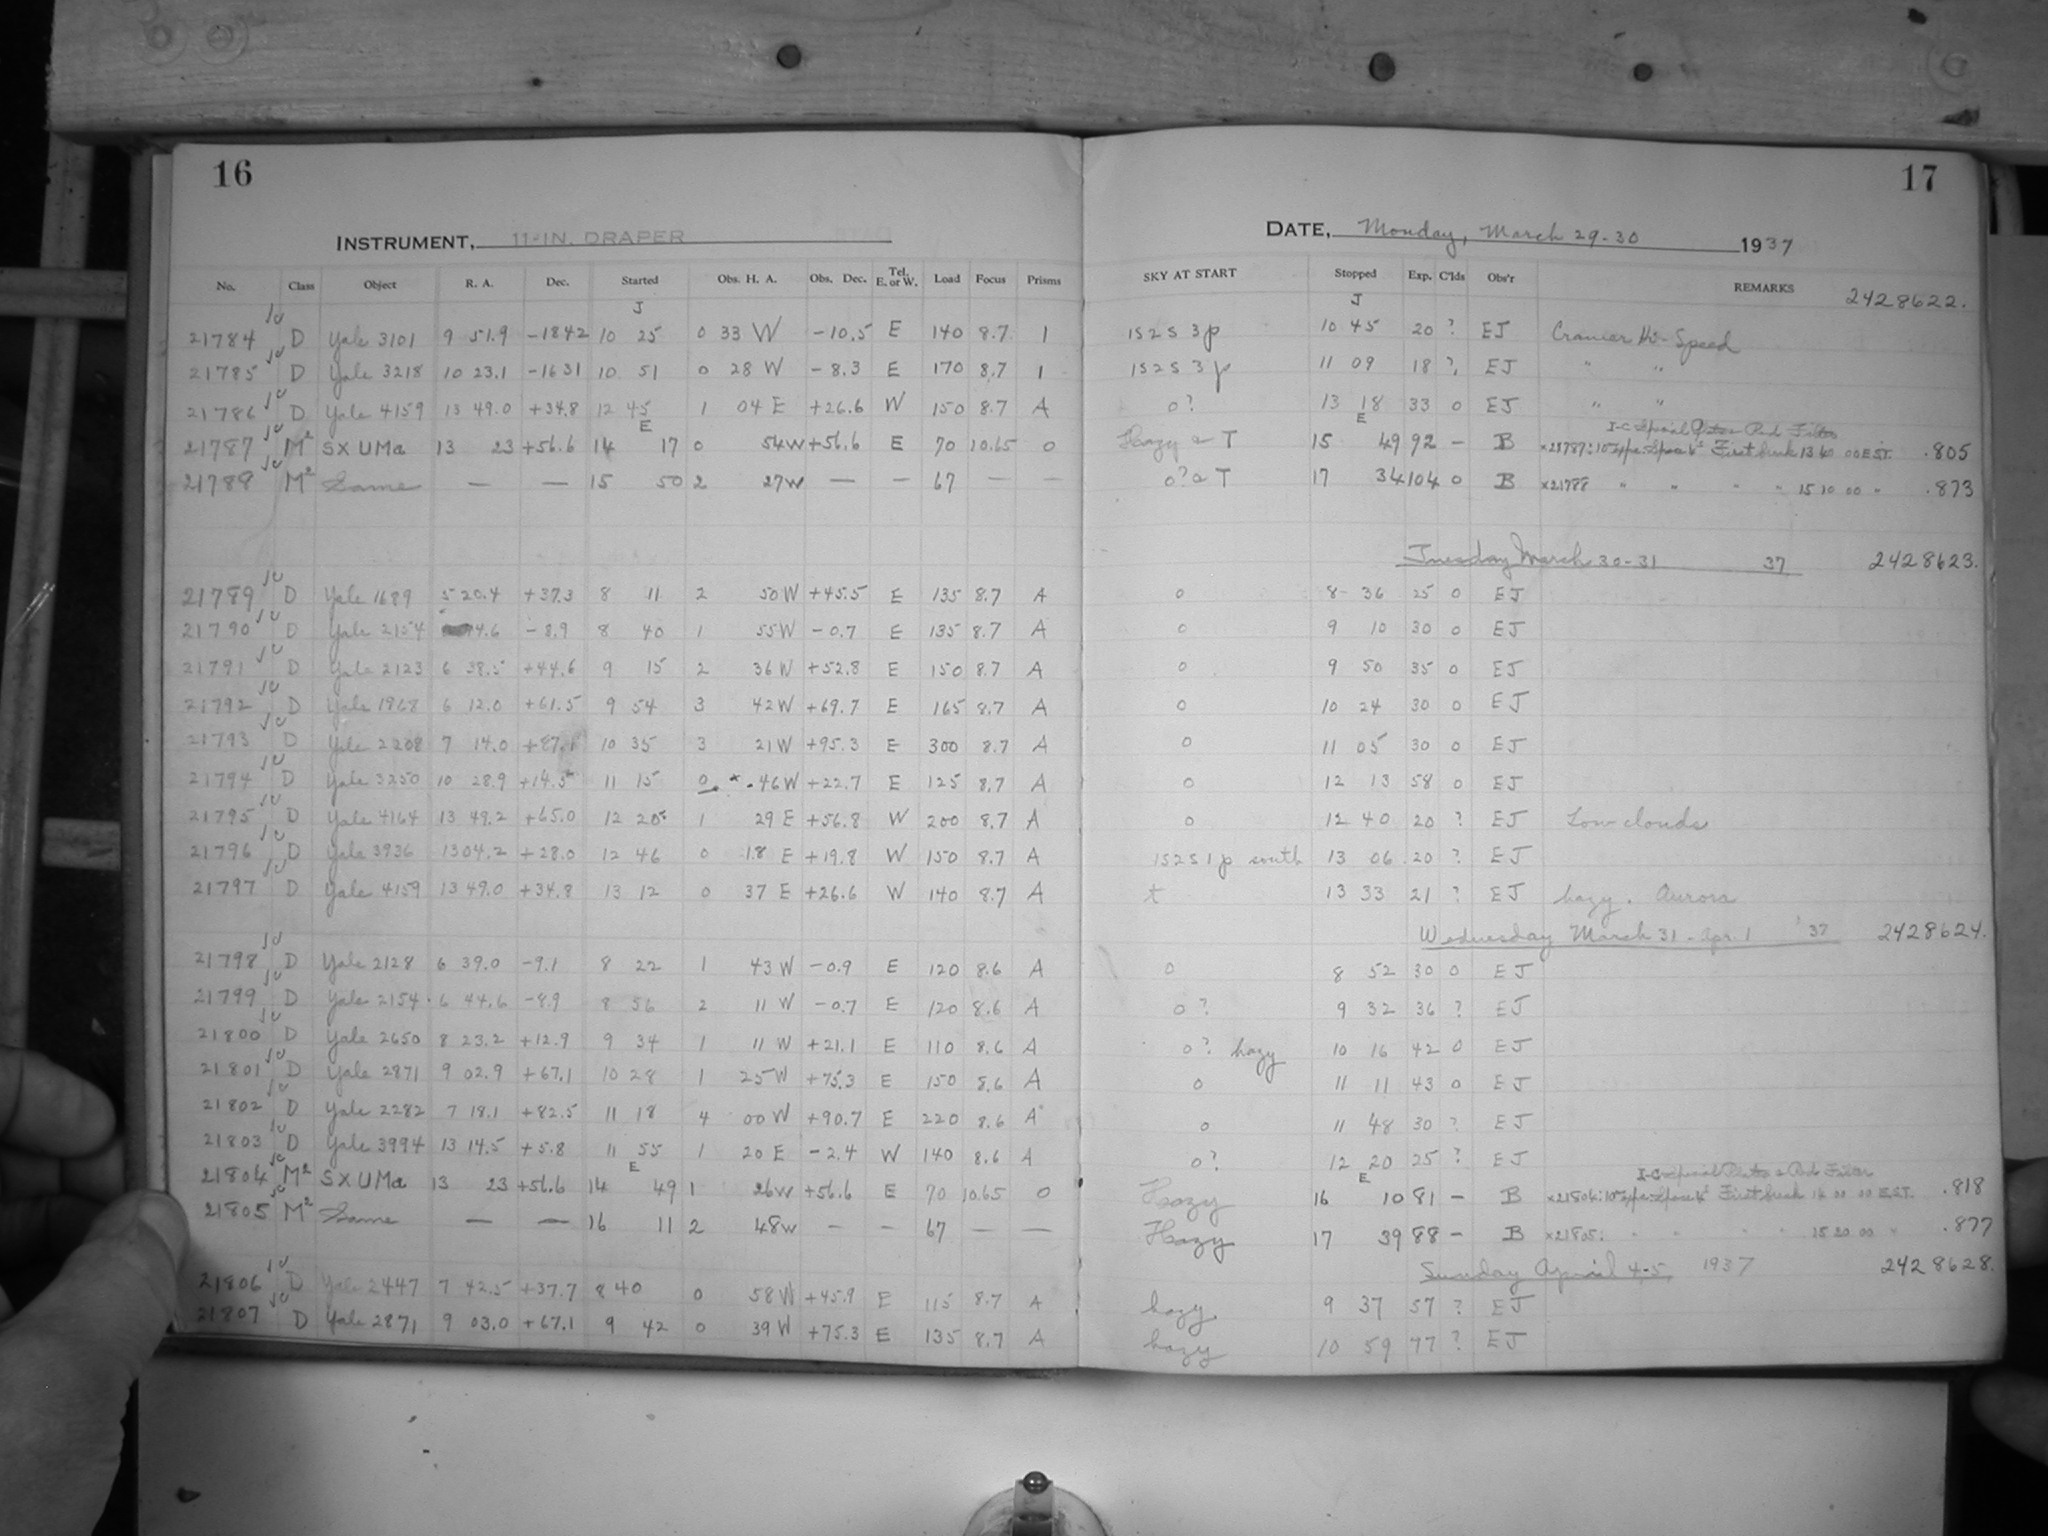 16
17
INSTRUMENT, 11-IN. DRAPER
DATE, Monday, March 29-30 1937
No. Class Object R. A. Dec. Started Obs. H. A. Obs. Dec. Tel. E. or W. Load Focus Prisms SKY AT START Stopped Exp. C'lds Obs'r REMARKS 2428622.
J J
21784 D Yale 3101 9 51.9 -1842 10 25 0 33 W -10.5 E 140 8.7 1 1S2S3p 10 45 20 ? EJ Cramer Hi-Speed
21785 D Yale 3218 10 23.1 -1631 10 51 0 28 W -8.3 E 170 8.7 1 1S2S3p 11 09 18 ? EJ " "
21786 D Yale 4159 13 49.0 +34.8 12 45 1 04 E +26.6 W 150 8.7 A 0? 13 18 33 0 EJ " "
E E
21787 M² SX UMa 13 23 +56.6 14 17 0 54W +56.6 E 70 10.65 0 Hazy a T 15 49 92 - B I-C Special Plates Red Filter x21787: First break 13 40 00 EST. .805
21788 M² Same — — 15 50 2 27W — — 67 — — 0? a T 17 34 104 0 B x21788 " " " " 15 10 00 " .873
Tuesday March 30-31 37 2428623.
21789 D Yale 1689 5 20.4 +37.3 8 11 2 50W +45.5 E 135 8.7 A 0 8 36 25 0 EJ
21790 D Yale 2154 44.6 -8.9 8 40 1 55W -0.7 E 135 8.7 A 0 9 10 30 0 EJ
21791 D Yale 2123 6 38.5 +44.6 9 15 2 36W +52.8 E 150 8.7 A 0 9 50 35 0 EJ
21792 D Yale 1968 6 12.0 +61.5 9 54 3 42W +69.7 E 165 8.7 A 0 10 24 30 0 EJ
21793 D Yale 2208 7 14.0 +87.1 10 35 3 21W +95.3 E 300 8.7 A 0 11 05 30 0 EJ
21794 D Yale 3250 10 28.9 +14.5 11 15 0 46W +22.7 E 125 8.7 A 0 12 13 58 0 EJ
21795 D Yale 4164 13 49.2 +65.0 12 20 1 29 E +56.8 W 200 8.7 A 0 12 40 20 ? EJ Low clouds
21796 D Yale 3936 13 04.2 +28.0 12 46 0 18 E +19.8 W 150 8.7 A 1S2S1p south 13 06 20 ? EJ
21797 D Yale 4159 13 49.0 +34.8 13 12 0 37 E +26.6 W 140 8.7 A t 13 33 21 ? EJ hazy. Aurora
Wednesday March 31 - Apr. 1 '37 2428624.
21798 D Yale 2128 6 39.0 -9.1 8 22 1 43 W -0.9 E 120 8.6 A 0 8 52 30 0 EJ
21799 D Yale 2154 6 44.6 -8.9 8 56 2 11 W -0.7 E 120 8.6 A 0? 9 32 36 ? EJ
21800 D Yale 2650 8 23.2 +12.9 9 34 1 11 W +21.1 E 110 8.6 A 0? hazy 10 16 42 0 EJ
21801 D Yale 2871 9 02.9 +67.1 10 28 1 25W +75.3 E 150 8.6 A 0 11 11 43 0 EJ
21802 D Yale 2282 7 18.1 +82.5 11 18 4 00 W +90.7 E 220 8.6 A 0 11 48 30 ? EJ
21803 D Yale 3994 13 14.5 +5.8 11 55 1 20 E -2.4 W 140 8.6 A 0? 12 20 25 ? EJ
E E
21804 M² SX UMa 13 23 +56.6 14 49 1 26W +56.6 E 70 10.65 0 Hazy 16 10 81 - B I-C Special Plates Red Filter x21804: First break 14 00 00 EST. .818
21805 M² Same — — 16 11 2 48W — — 67 — — Hazy 17 39 88 - B x21805: " " " 15 20 00 " .877
Sunday April 4-5, 1937 2428628.
21806 D Yale 2447 7 42.5 +37.7 8 40 0 58W +45.9 E 115 8.7 A hazy 9 37 57 ? EJ
21807 D Yale 2871 9 03.0 +67.1 9 42 0 39W +75.3 E 135 8.7 A hazy 10 59 77 ? EJ